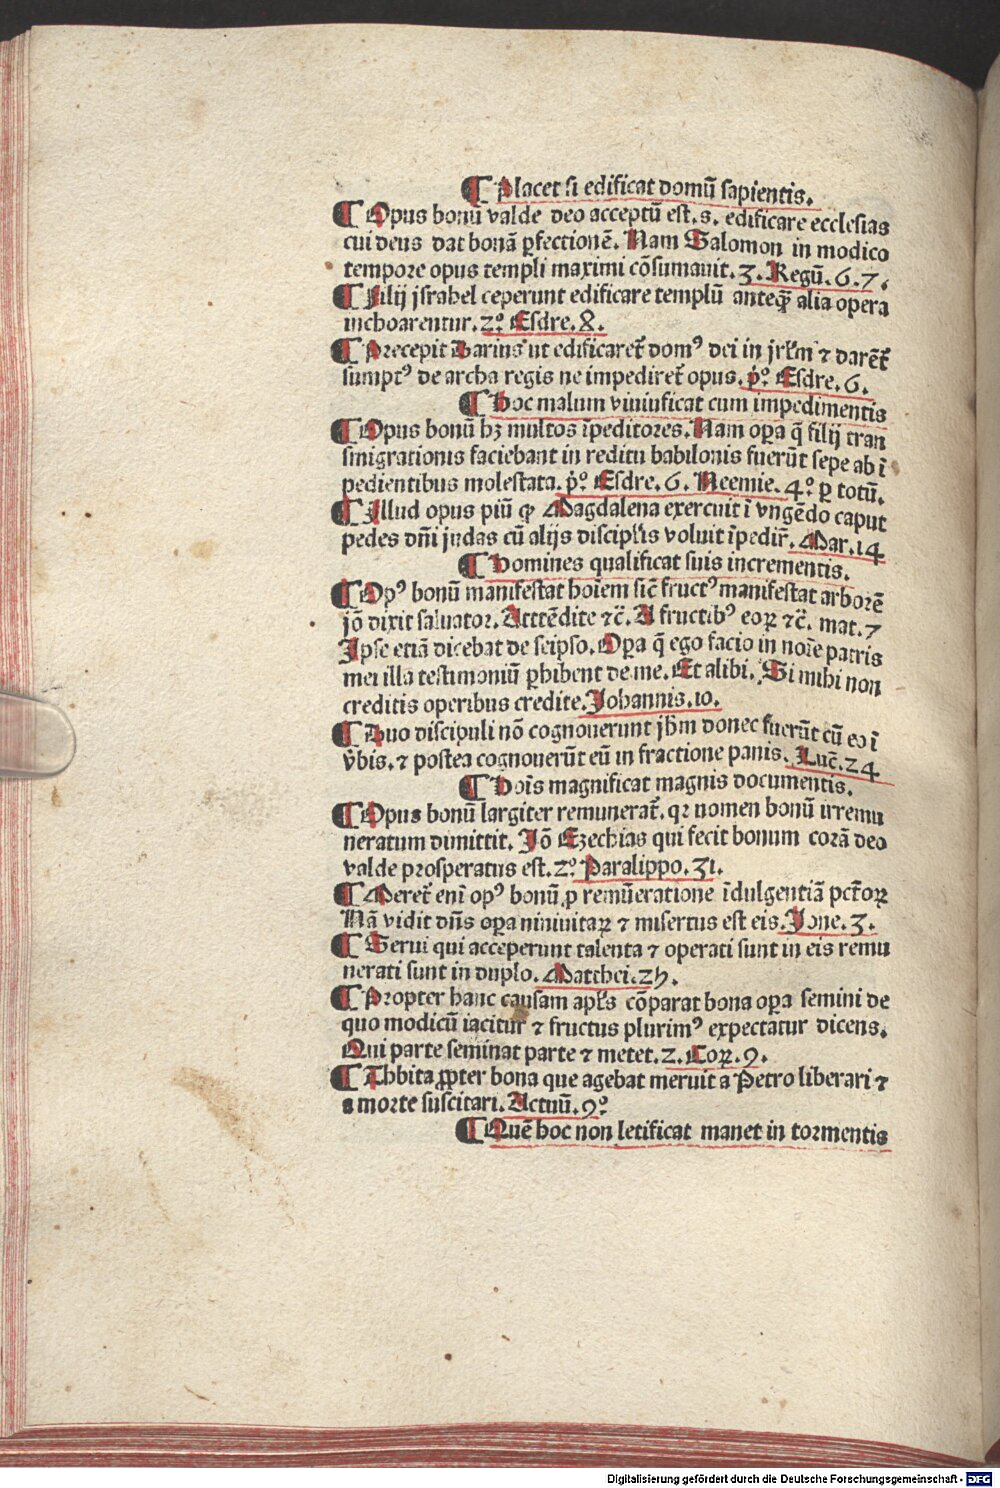 ¶ Placet si edificat domū sapientis.
¶ Opus bonū valde deo acceptū est. s. edificare ecclesias
cui deus dat bonā ꝑfectionē. Nam Salomon in modico
tempore opus templi maximi cōsumauit. 3. Regū. 6. 7.
¶ Filij jsrahel ceperunt edificare templū anteq̄ꝫ alia opera
inchoarentur. 2º Esdre. 8.
¶ Precepit Darius ut edificareꝉ domꝰ dei in jrl̄m ⁊ darēꝉ
sumptꝰ de archa regis ne impedireꝉ opus. p̄º Esdre. 6.
¶ Hoc malum viuificat cum impedimentis
¶ Opus bonū hꝫ multos īpeditores. Nam oꝑa q̄ filij tran
smigrationis faciebant in reditu babilonis fuerūt sepe ab ī
pedientibus molestata. p̄º Esdre. 6. Neemie. 4º ꝑ totū.
¶ Illud opus piū ꝙ Magdalena exercuit ī vngēdo caput
pedes dn̄i judas cū alijs discipl̄is voluit īpedir̄. Mar. 14
¶ Homines qualificat suis incrementis.
¶ Opꝰ bonū manifestat hoīem sic̄ fructꝰ manifestat arborē
jō dixit saluator. Attēdite ⁊c̄. A fructibꝰ eoꝝ ⁊c̄. mat. 7
Ipse etiā dicebat de seipso. Oꝑa q̄ ego facio in noīe patris
mei illa testimoniū ꝑhibent de me. Et alibi. Si mihi non
creditis operibus credite. Johannis. 10.
¶ Duo discipuli nō cognouerunt jhm̄ donec fuerūt cū eo ī
v̄bis. ⁊ postea cognouerūt eū in fractione panis. Luc̄. 24
¶ Hoīs magnificat magnis documentis.
¶ Opus bonū largiter remuneraꝉ. qꝛ nomen bonū irremu
neratum dimittit. Jō Ezechias qui fecit bonum corā deo
valde prosperatus est. 2º Paralippo. 31.
¶ Mereꝉ enī opꝰ bonū ꝓ remūeratione īdulgentiā pct̄oꝝ
Nā vidit dn̄s oꝑa niniuitaꝝ ⁊ misertus est eis. Jone. 3.
¶ Serui qui acceperunt talenta ⁊ operati sunt in eis remu
nerati sunt in duplo. Matthei. 25.
¶ Propter hanc causam apl̄s cōparat bona oꝑa semini de
quo modicū iacitur ⁊ fructus plurimꝰ expectatur dicens.
Qui parte seminat parte ⁊ metet. 2. Coꝝ. 9.
¶ Thbita ꝓpter bona que agebat meruit a Petro liberari ⁊
a morte suscitari. Actuū. 9º
¶ Quē hoc non letificat manet in tormentis
Digitalisierung gefördert durch die Deutsche Forschungsgemeinschaft - DFG